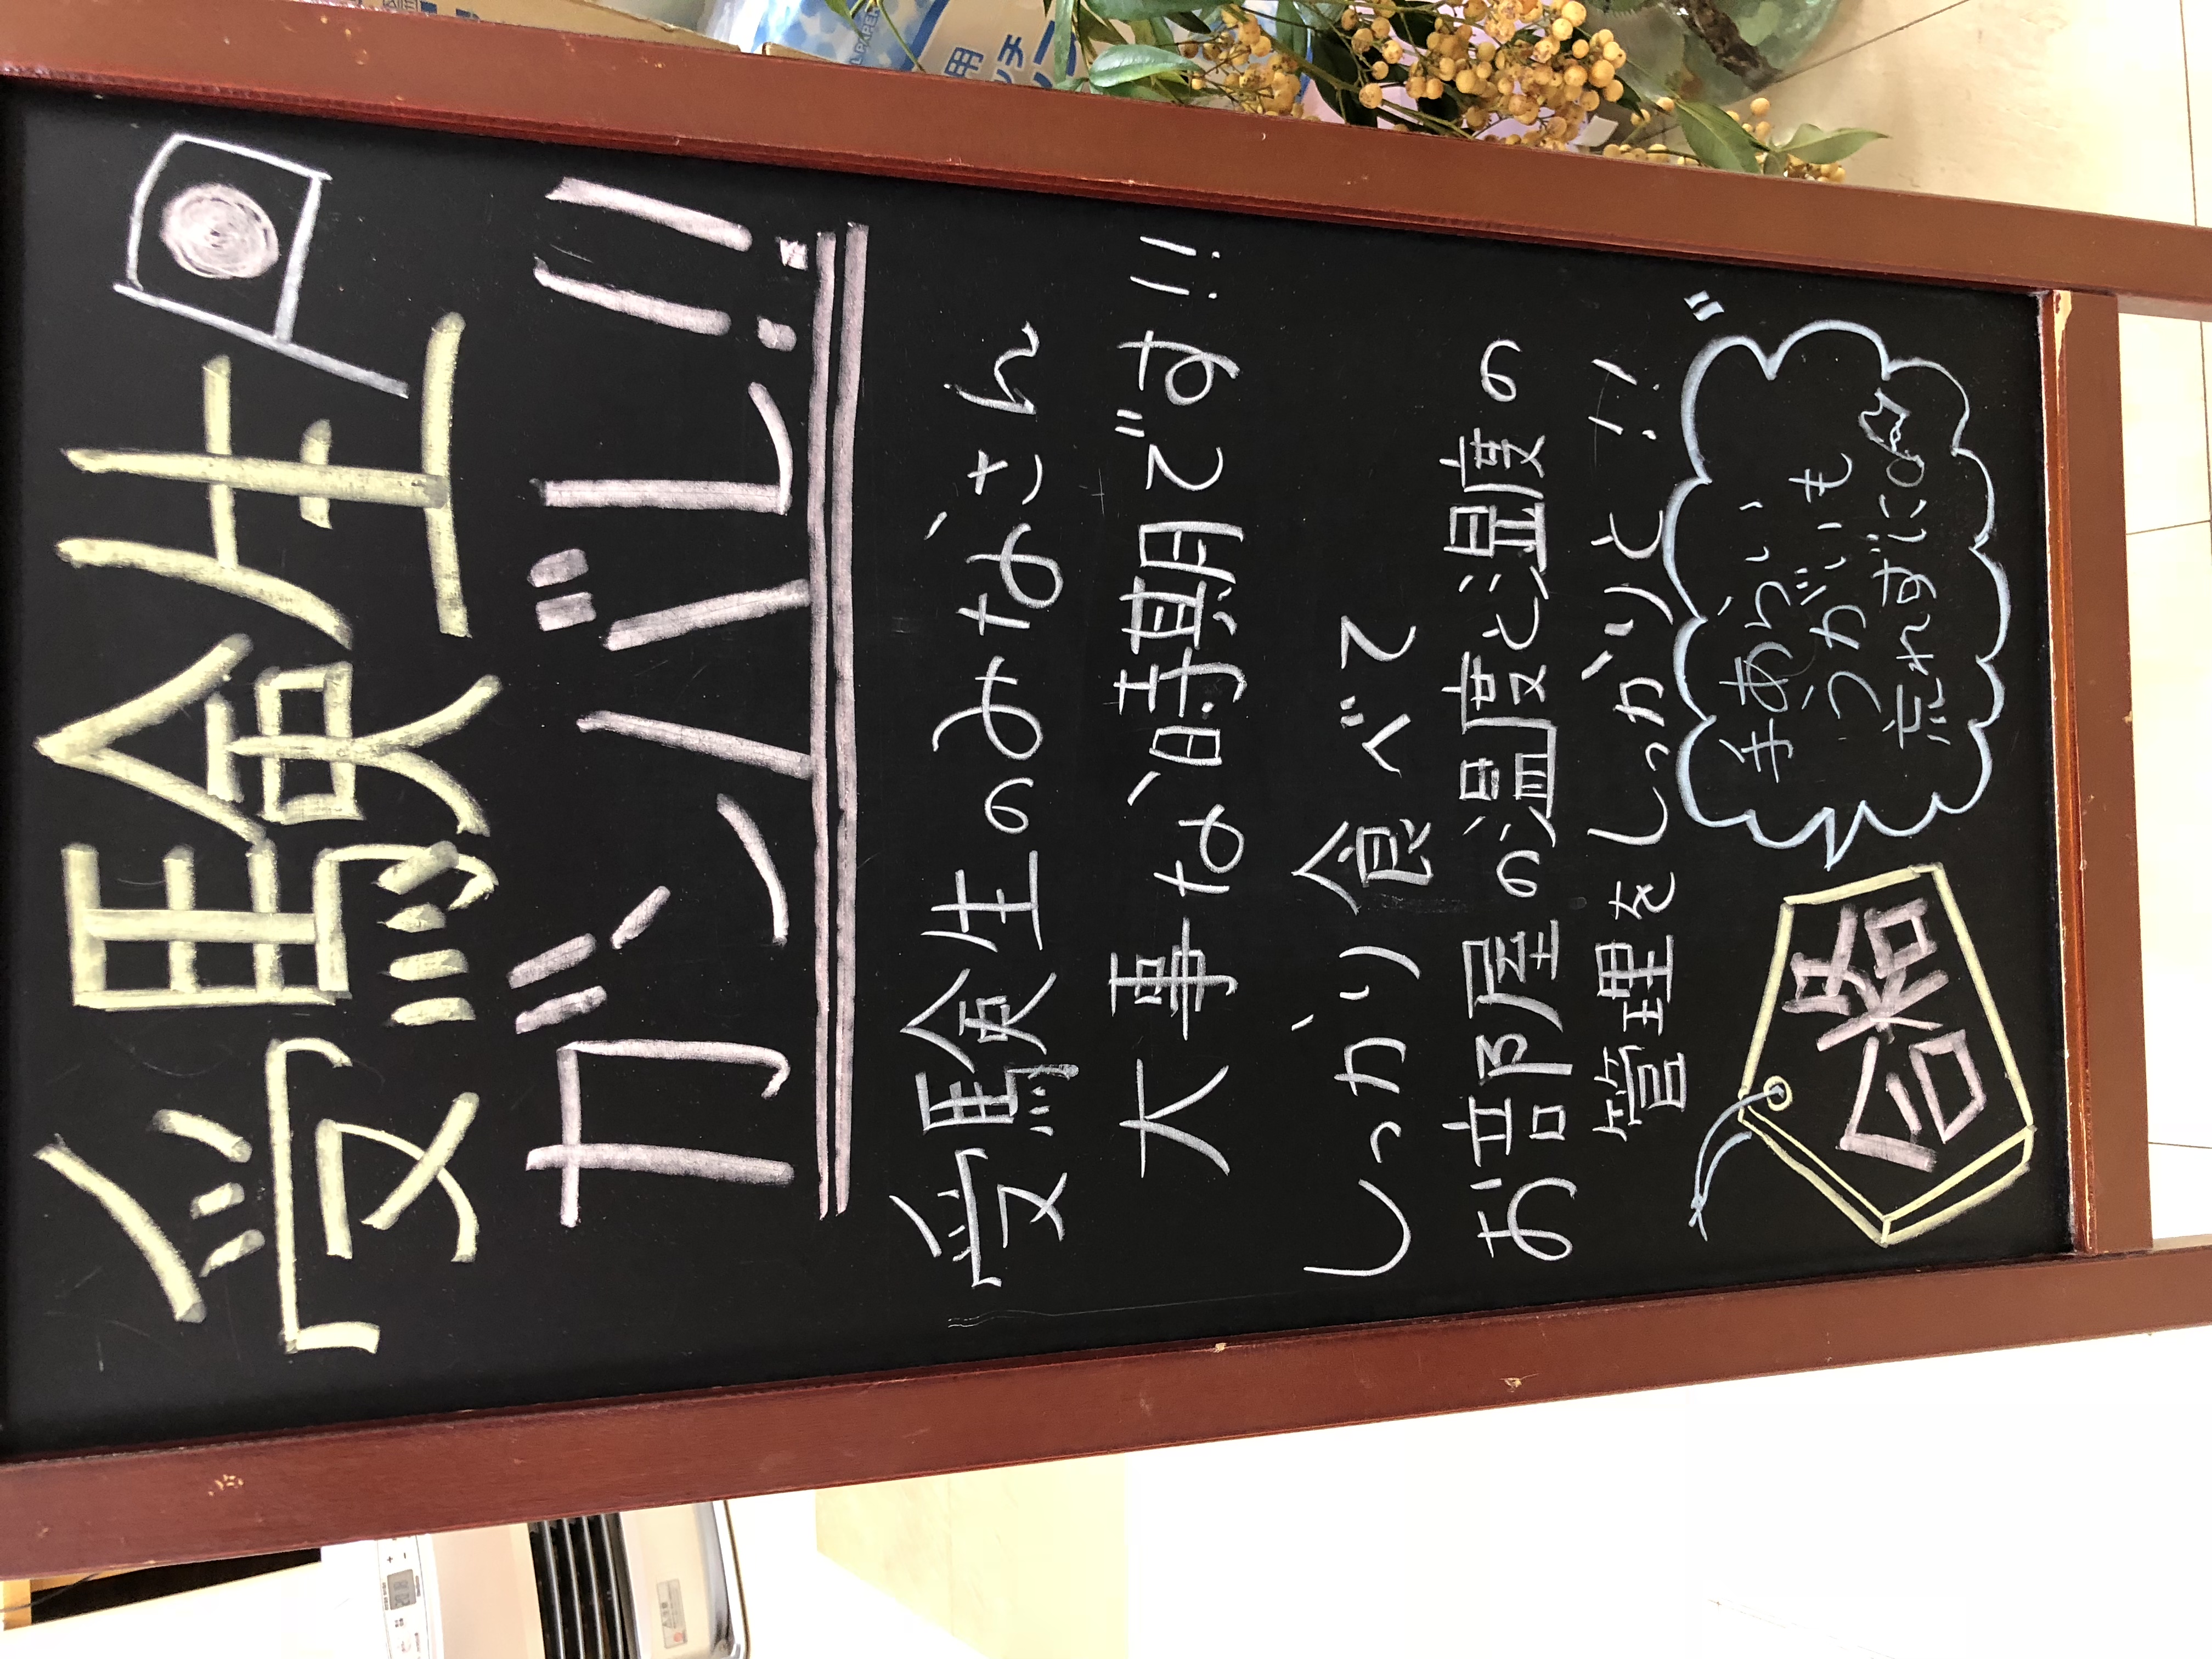 受験生
ガンバレ!!
受験生のみなさん
大事な時期です!!
しっかり食べて
お部屋の温度と湿度の
管理をしっかりと!!
手あらい
うがいも
忘れずに
合格